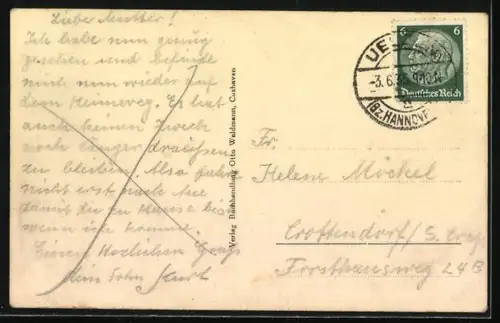 Liebe Mutter!
Ich habe nun genug
gesehen und befinde
mich nun wieder auf
dem Heimweg. Es hat
auch keinen Zweck
noch länger draußen
zu bleiben. Also fahre
nicht erst nach Aue
damit du zu Hause bist
wenn ich komme.
Einen Herzlichen Gruß
dein Sohn Kurt
Verlag Buchhandlung Otto Waldmann, Cuxhaven
6 6
Deutsches Reich
UE
-3.6.
Bz. HANNOVER
Fr.
Helene Möckel
Crottendorf/S. Erzg.
Forsthausweg 24B